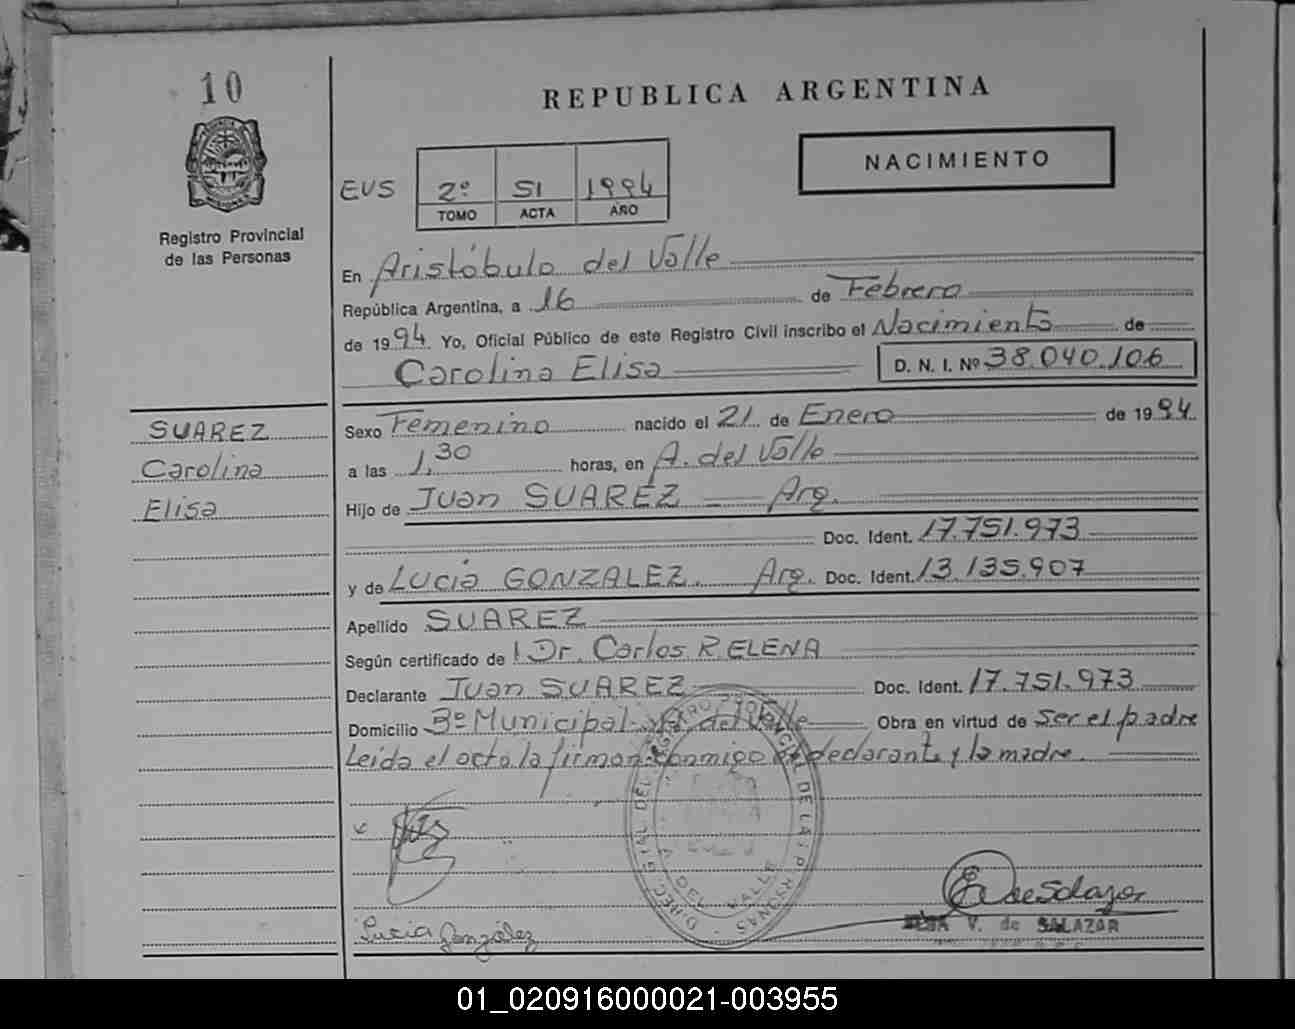 10
Registro Provincial
de las Personas
REPUBLICA ARGENTINA
NACIMIENTO
EUS 2º 51 1994
TOMO ACTA AÑO
En Aristóbulo del Valle
República Argentina, a 16 de Febrero
de 1994 Yo, Oficial Público de este Registro Civil inscribo el Nacimiento de
Carolina Elisa D. N. I. Nº 38.040.106
SUAREZ
Carolina
Elisa
Sexo Femenino nacido el 21 de Enero de 1994
a las 1,30 horas, en A. del Valle
Hijo de Juan SUAREZ Arg.
Doc. Ident. 17.751.973
y de Lucia GONZALEZ. Arg. Doc. Ident. 13.135.907
Apellido SUAREZ
Según certificado de Dr. Carlos R. ELENA
Declarante Juan SUAREZ Doc. Ident. 17.751.973
Domicilio Bº Municipal- A. del Valle Obra en virtud de ser el padre
Leida el acta la firman conmigo el declarante y la madre.
Lucia González
E V de Salazar
V. de SALAZAR
01_020916000021-003955